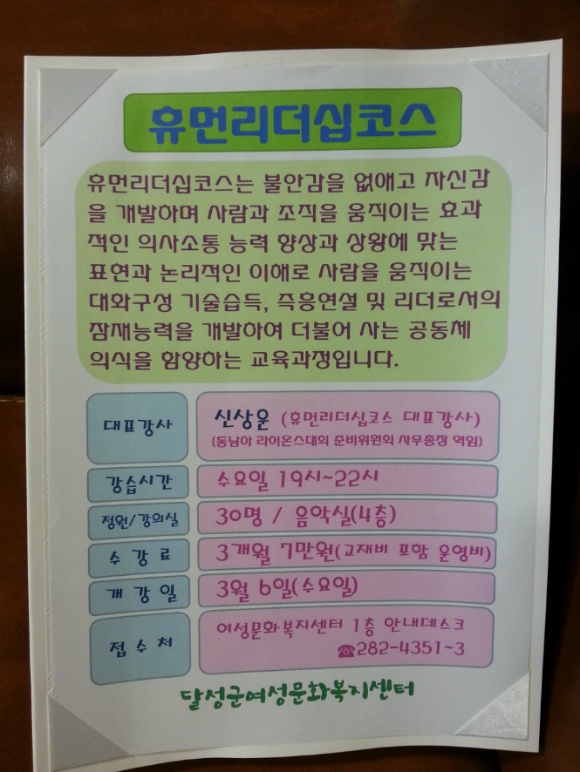 휴먼리더십코스
휴먼리더십코스는 불안감을 없애고 자신감
을 개발하며 사람과 조직을 움직이는 효과
적인 의사소통 능력 향상과 상황에 맞는
표현과 논리적인 이해로 사람을 움직이는
대화구성 기술습득, 즉흥연설 및 리더로서의
잠재능력을 개발하여 더불어 사는 공동체
의식을 함양하는 교육과정입니다.
대표강사 신상운 (휴먼리더십코스 대표강사)
(동남아 라이온스대회 준비위원회 사무총장 역임)
강습시간 수요일 19시~22시
정원/강의실 30명 / 음악실(4층)
수강료 3개월 7만원(교재비 포함 운영비)
개강일 3월 6일(수요일)
접수처 여성문화복지센터 1층 안내데스크
☎282-4351~3
달성군여성문화복지센터